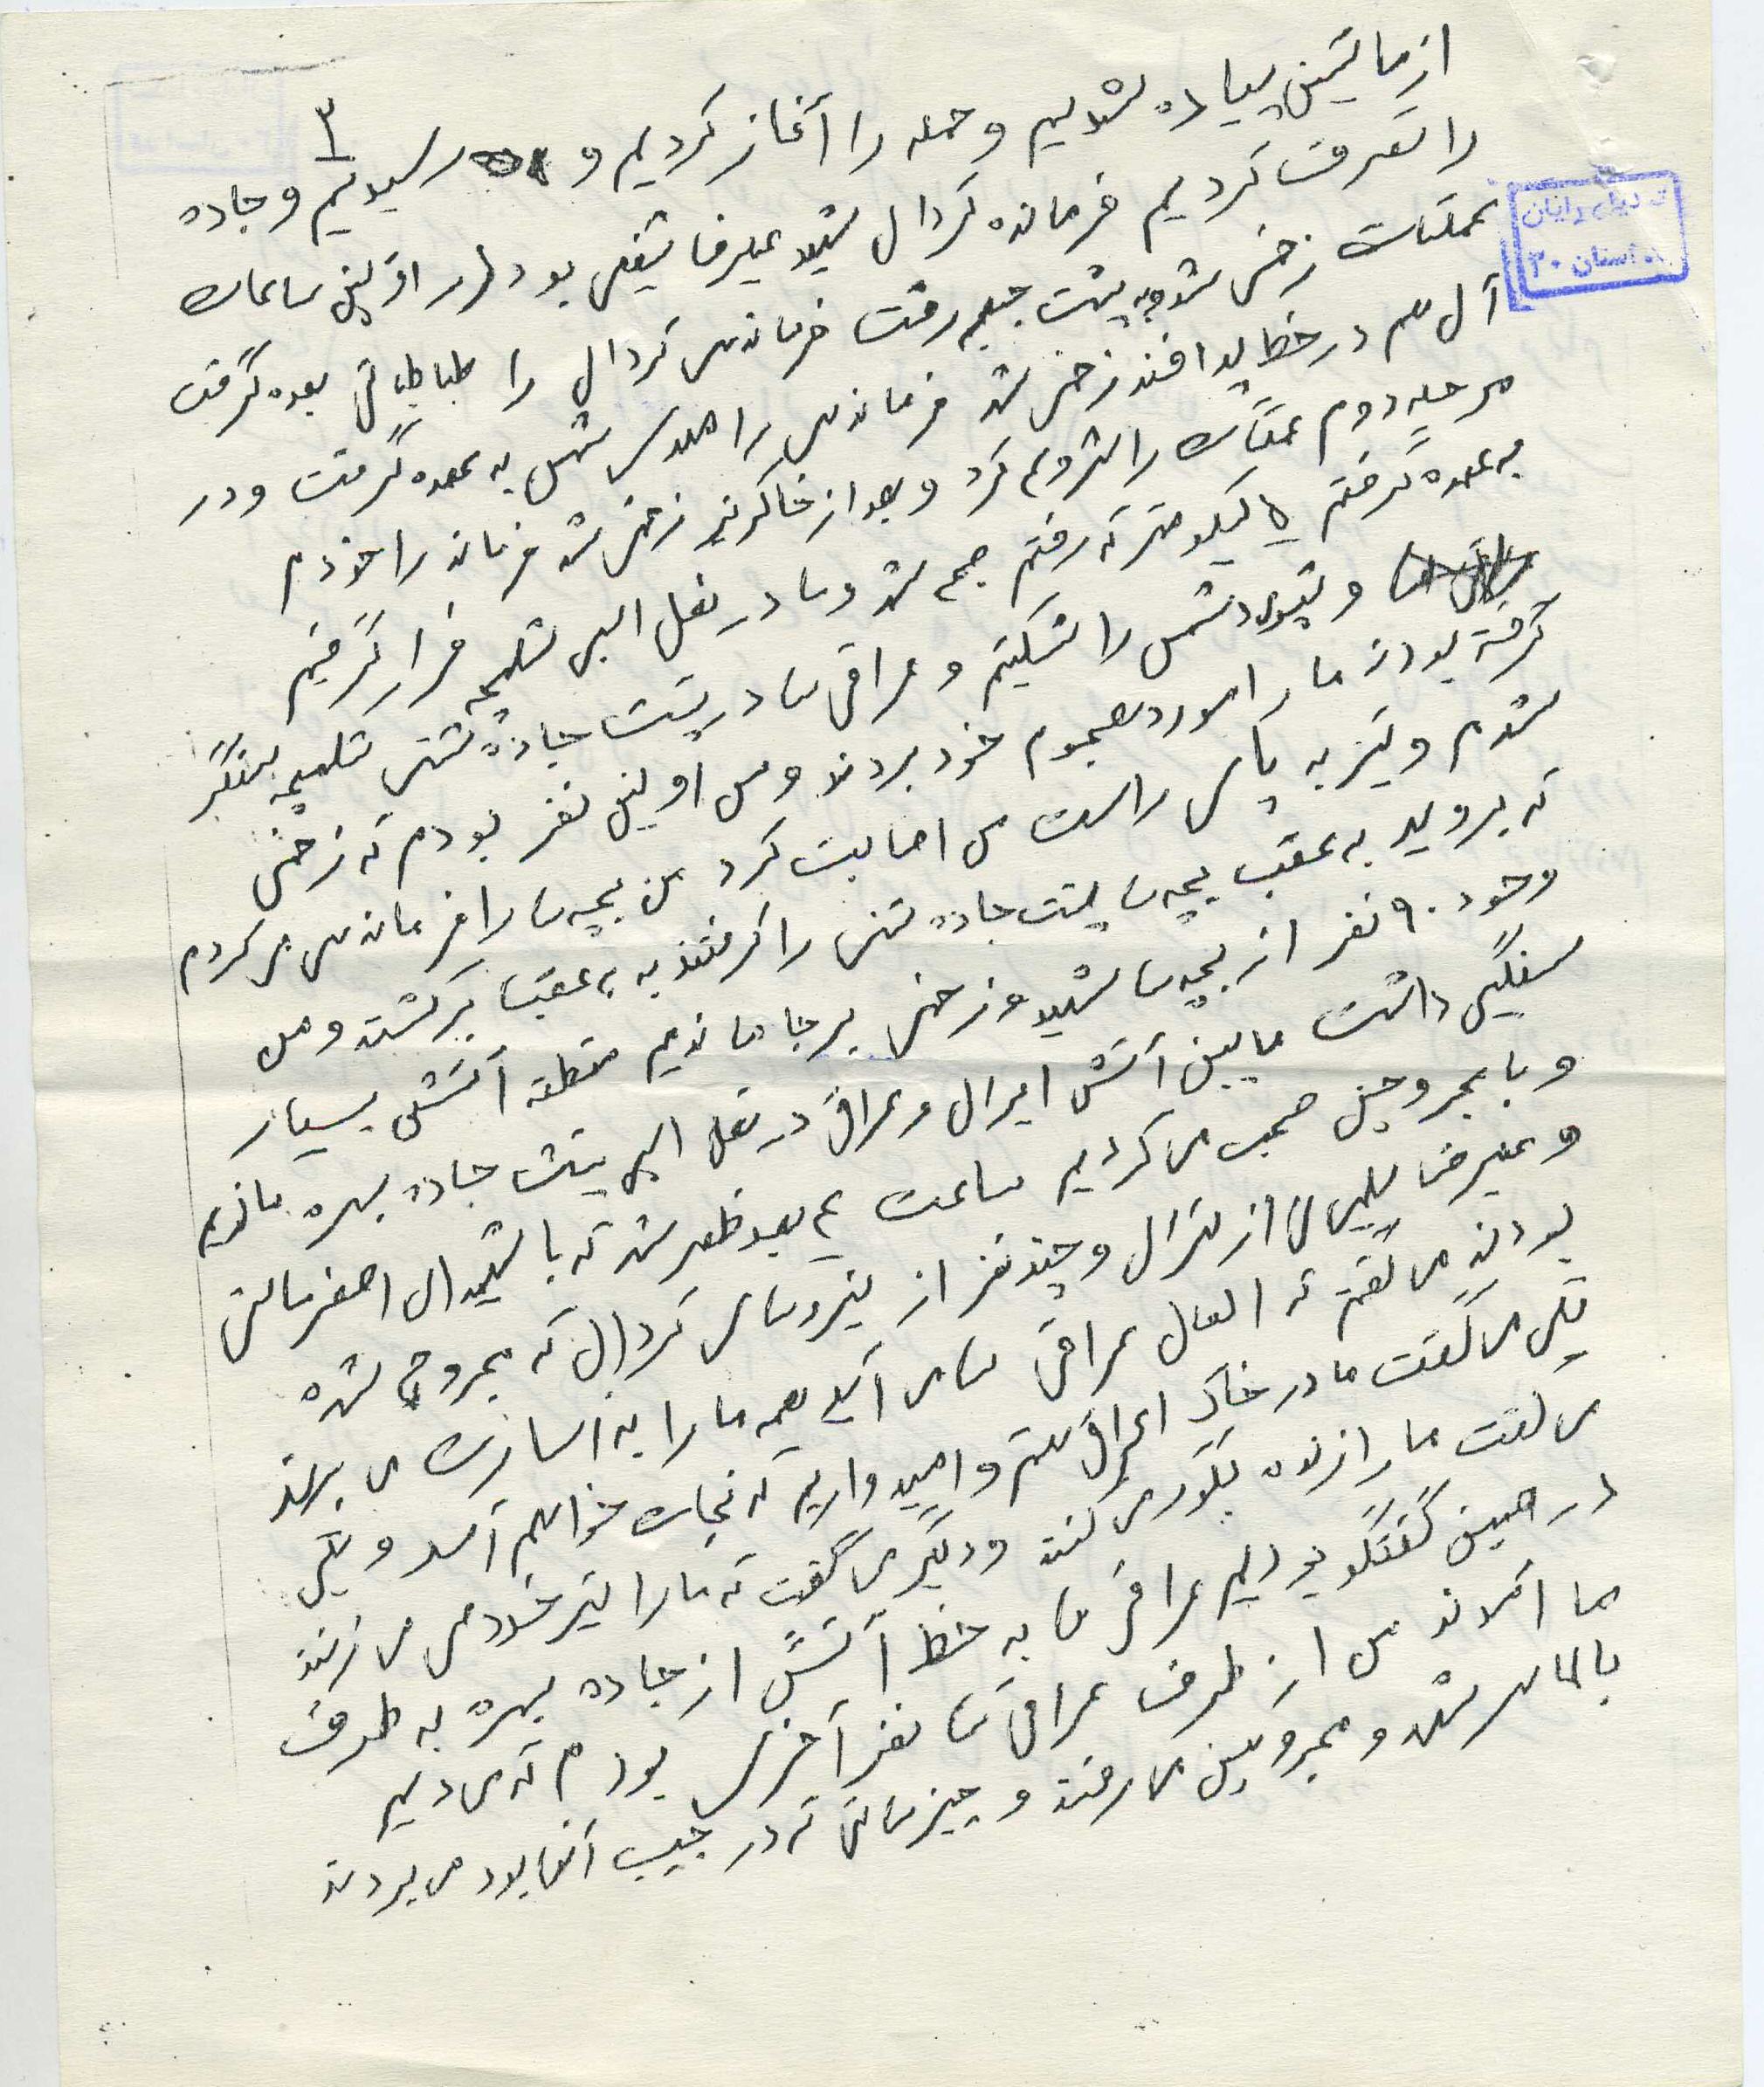 ۳
از ماشین پیاده شدیم و حمله را آغاز کردیم و رسیدیم و جاده
را تصرف کردیم فرمانده گردان شهید علیرضا بود در اولین ساعات
عملیات زخمی شد و به پشت جبهه رفت فرماندهی گردان را طباطبائی بعهده گرفت
آن هم در خط پدافند زخمی شد فرماندهی را مهدی به عهده گرفت و در
مرحله دوم عملیات را شروع کرد و بعد از خاکریز زخمی شد فرمانده را خودم
به عهده گرفتم ۵ کیلومتر که رفتم جمع شد و ما در نعل اسبی شلمچه قرار گرفتیم
و نیروی دشمن را شکستیم و عراقی ها در پشت جاده شنی شلمچه سنگر
گرفته بودند ما را مورد هجوم خود بردند و من اولین نفر بودم که زخمی
شدم و تیر به پای راست من اصابت کرد من بچه ها را فرماندهی می کردم
که بروید به عقب بچه ها پشت جاده شنی را گرفتند به عقب برگشتند و من
وجود ۹۰ نفر از بچه ها شهید و زخمی برجا ماندیم منطقه آتشی بسیار
سنگین داشت مابین آتش ایران و عراق در نعل اسبی پشت جاده بصره ماندیم
و با مجروحین صحبت می کردیم ساعت ۴ بعد ظهر شد که با شهیدان اصغر
و علیرضا از و چند نفر از نیروهای گردان که مجروح شده
بودند می گفتم که الان عراقی ها می آیند همه ما را به اسارت می برند
یکی می گفت ما در خاک عراق هستیم و امیدواریم که نجات خواهیم آمد و یکی
می گفت ما را زنده بگور می کنند و دیگری می گفت که ما را تیر خلاص می زنند
در همین گفتگو بودیم عراقی ها به خط آتش از جاده بصره به طرف
ما آمدند من از طرف عراقی ها نفر آخری بودم که می دیدم
بالا سر شهید و مجروحین می رفتند و چیزهائی که در جیب آنها بود می بردند
استان ۳۰